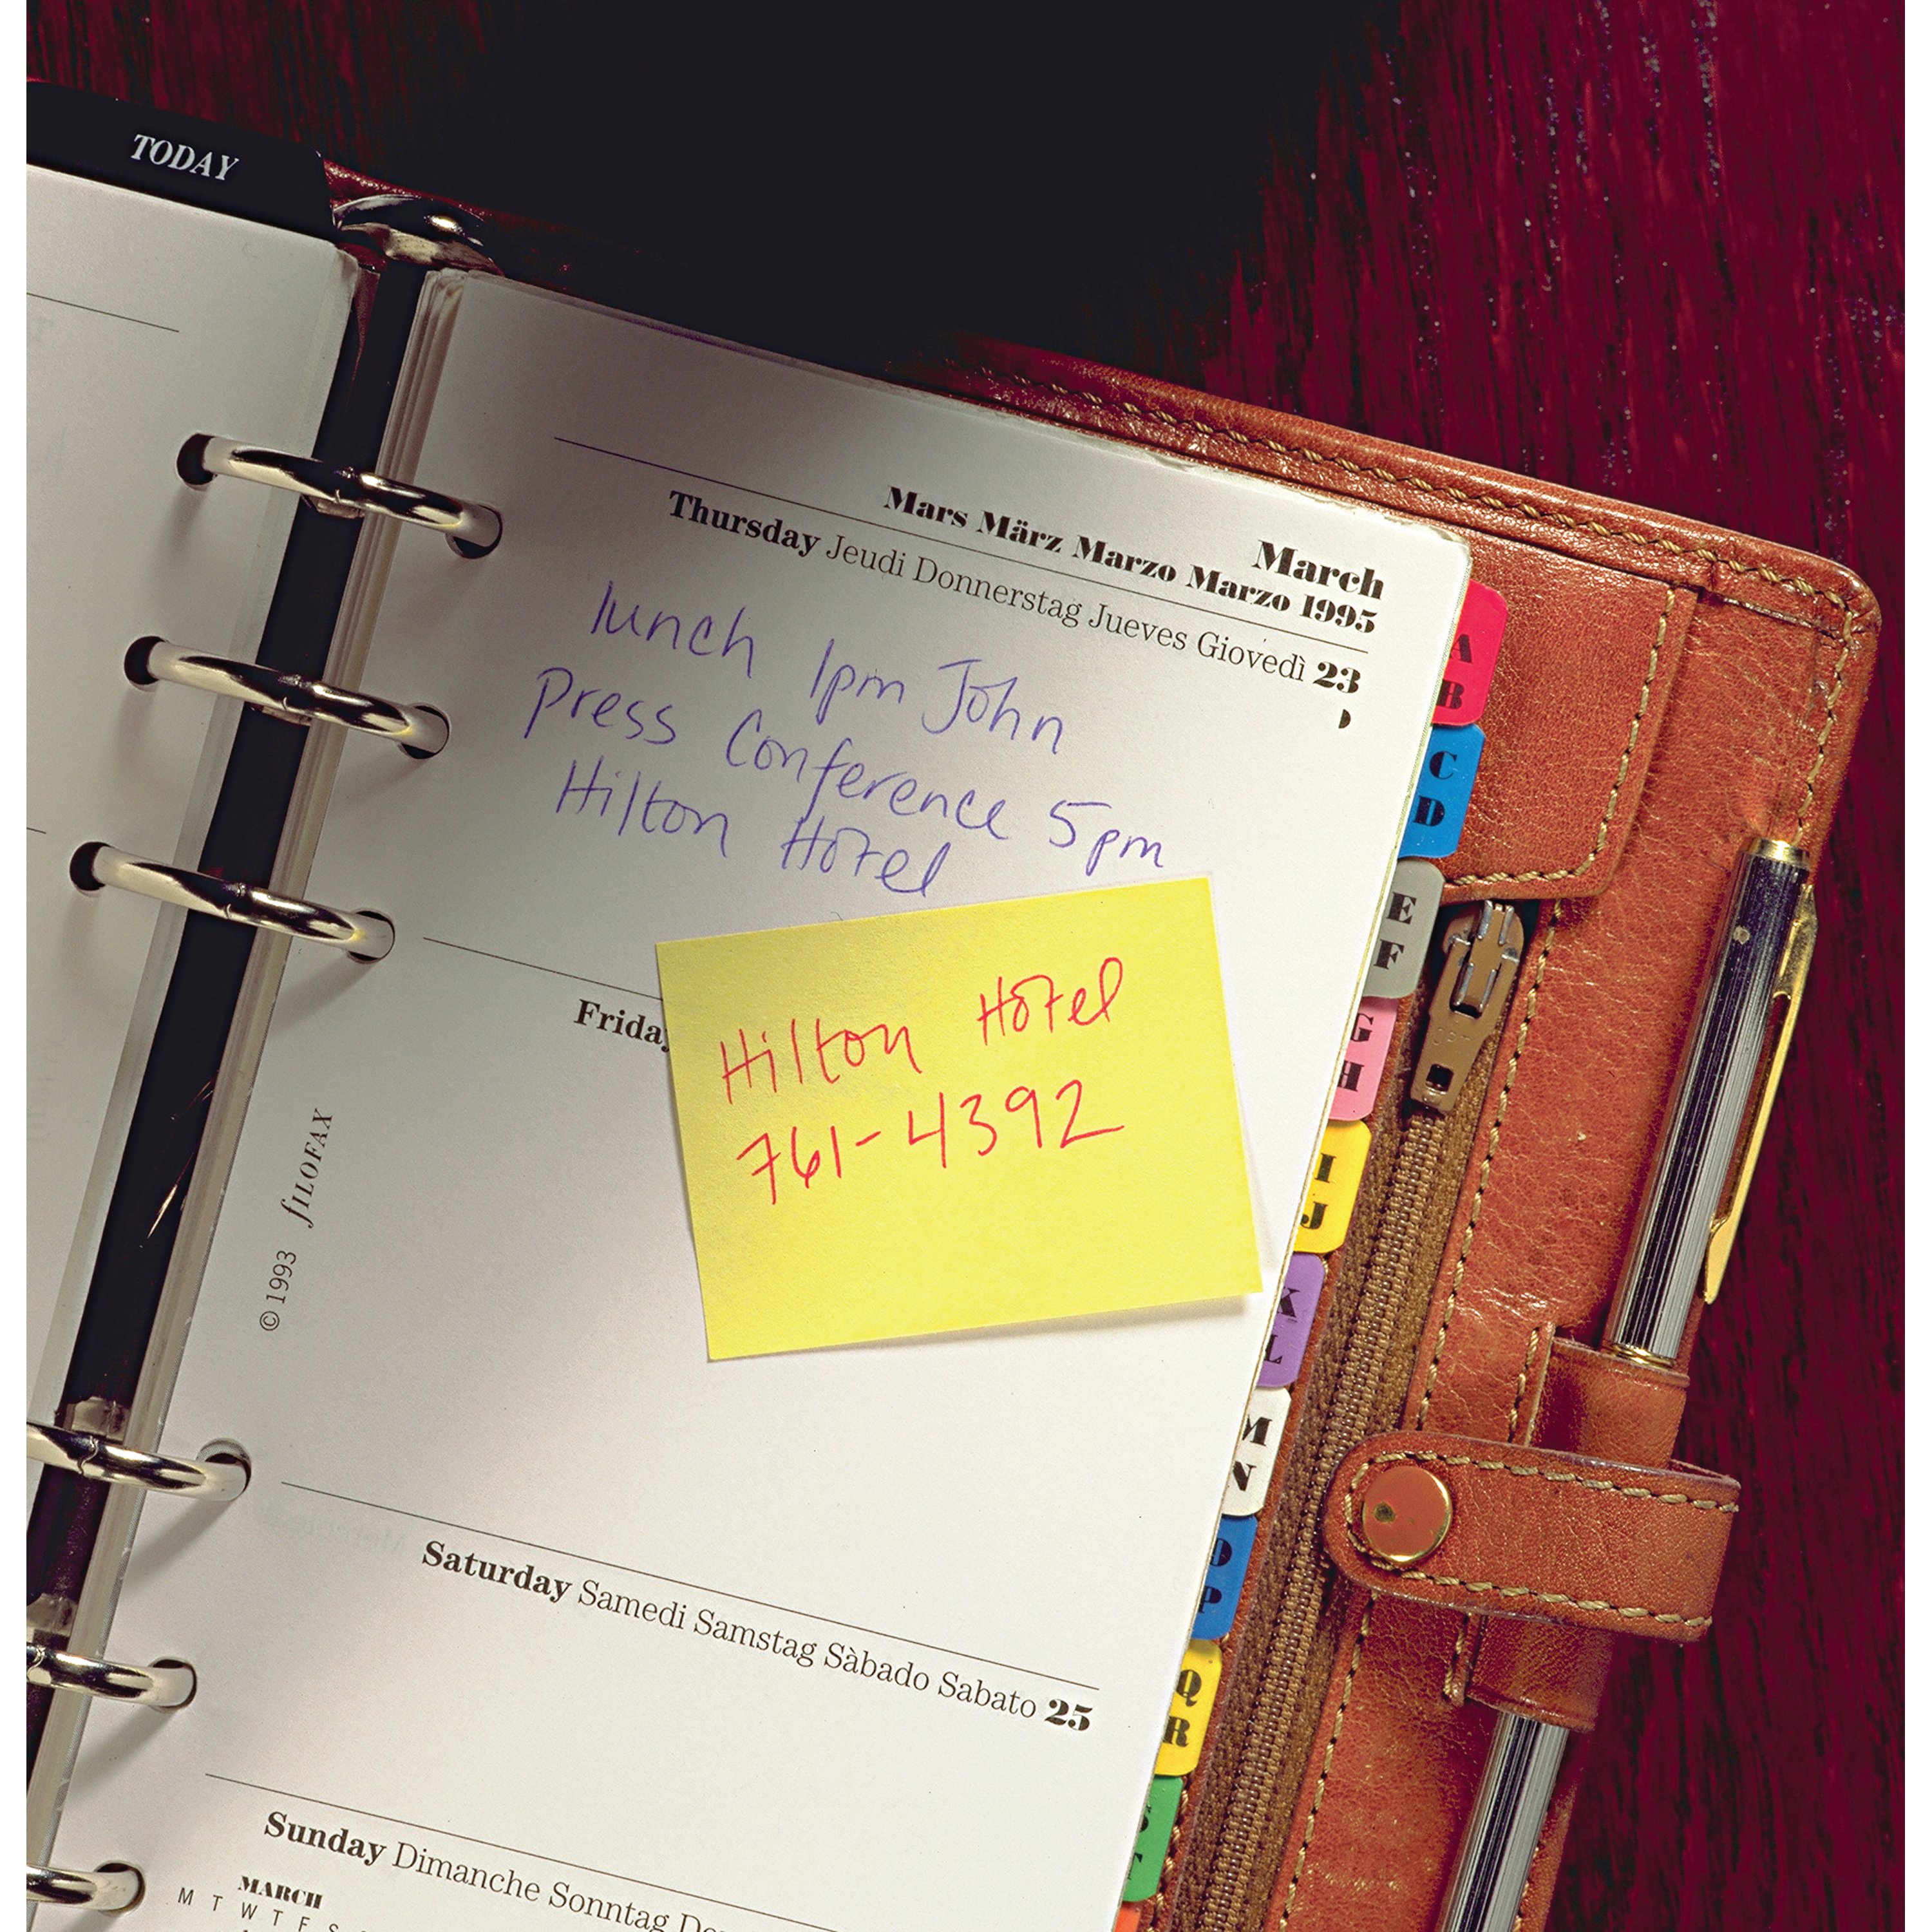 TODAY
March
Mars März Marzo Marzo 1995
Thursday Jeudi Donnerstag Jueves Giovedì 23
lunch 1pm John
Press Conference 5pm
Hilton Hotel
Hilton Hotel
761-4392
Friday
© 1993 fILOFAX
Saturday Samedi Samstag Sàbado Sabato 25
Sunday Dimanche Sonntag
MARCH
M T W T F S
A
B
C
D
E
F
G
H
I
J
K
L
M
N
O
P
Q
R
T